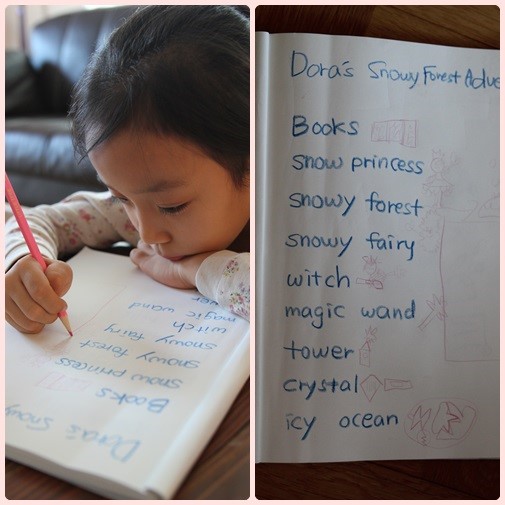 Dora's Snowy Forest Adve
Books
snow princess
snowy forest
snowy fairy
witch
magic wand
tower
crystal
icy ocean
Dora's Snowy
Books
snow princess
snowy forest
snowy fairy
witch
magic wand
wer